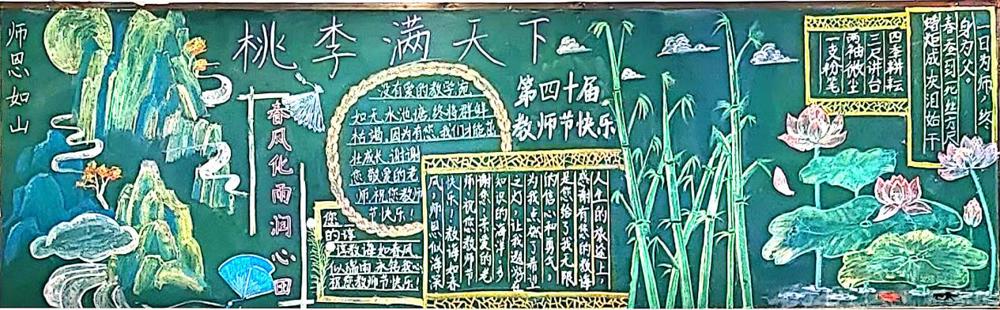 师恩如山
桃李满天下
春风化雨润心田
没有爱的教学宛
如无水池塘,终将群鲜
枯竭,因为有您,我们才能茁
壮成长,谢谢
您,敬爱的老
师,祝您教师
节快乐!
第四十届
教师节快乐
您的谆
谆教诲如春风
似瑞雨永铭我心
祝您教师节快乐!
人生的旅途上,
感谢有您的教诲
是您给了我无限
的信心和勇气,
为我点燃了希望
之灯,让我遨游
知识的海洋,多
谢您,亲爱的老
师,祝您教师节
快乐!教诲如春
风,师恩似海深
四季耕耘
三尺讲台
两袖微尘
一支粉笔
一日为师,终
身为父。
春蚕到死丝方尽
蜡炬成灰泪始干